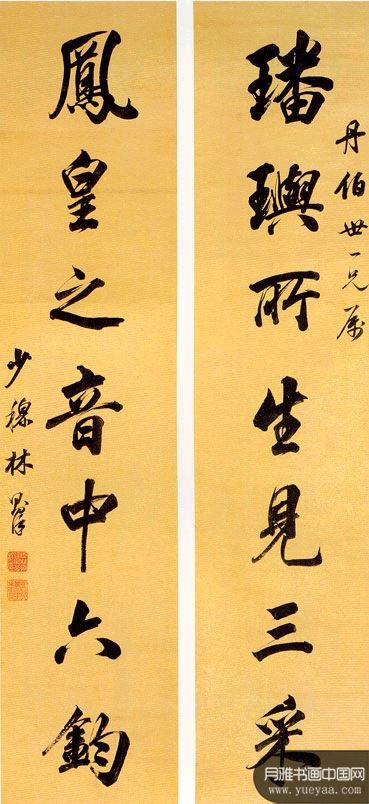 璠璵所生見三采
丹伯世一兄属
鳳皇之音中六鈞
少穆林則徐
月雅书画中国网
www.yueyaa.com